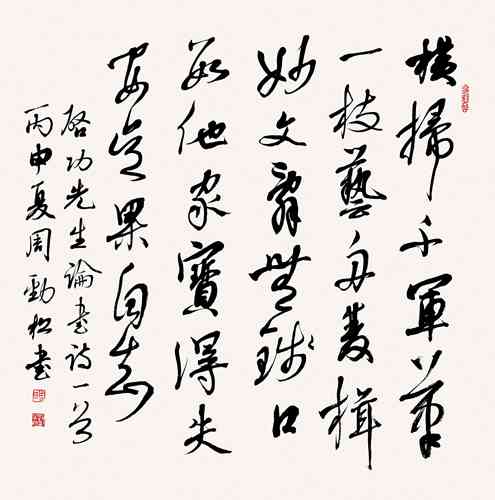 橫掃千軍筆
一枝藝舟雙楫
妙文辭無錢口
數他家寶得失
安危果自知
啓功先生論書詩一首
丙申夏周勁松書